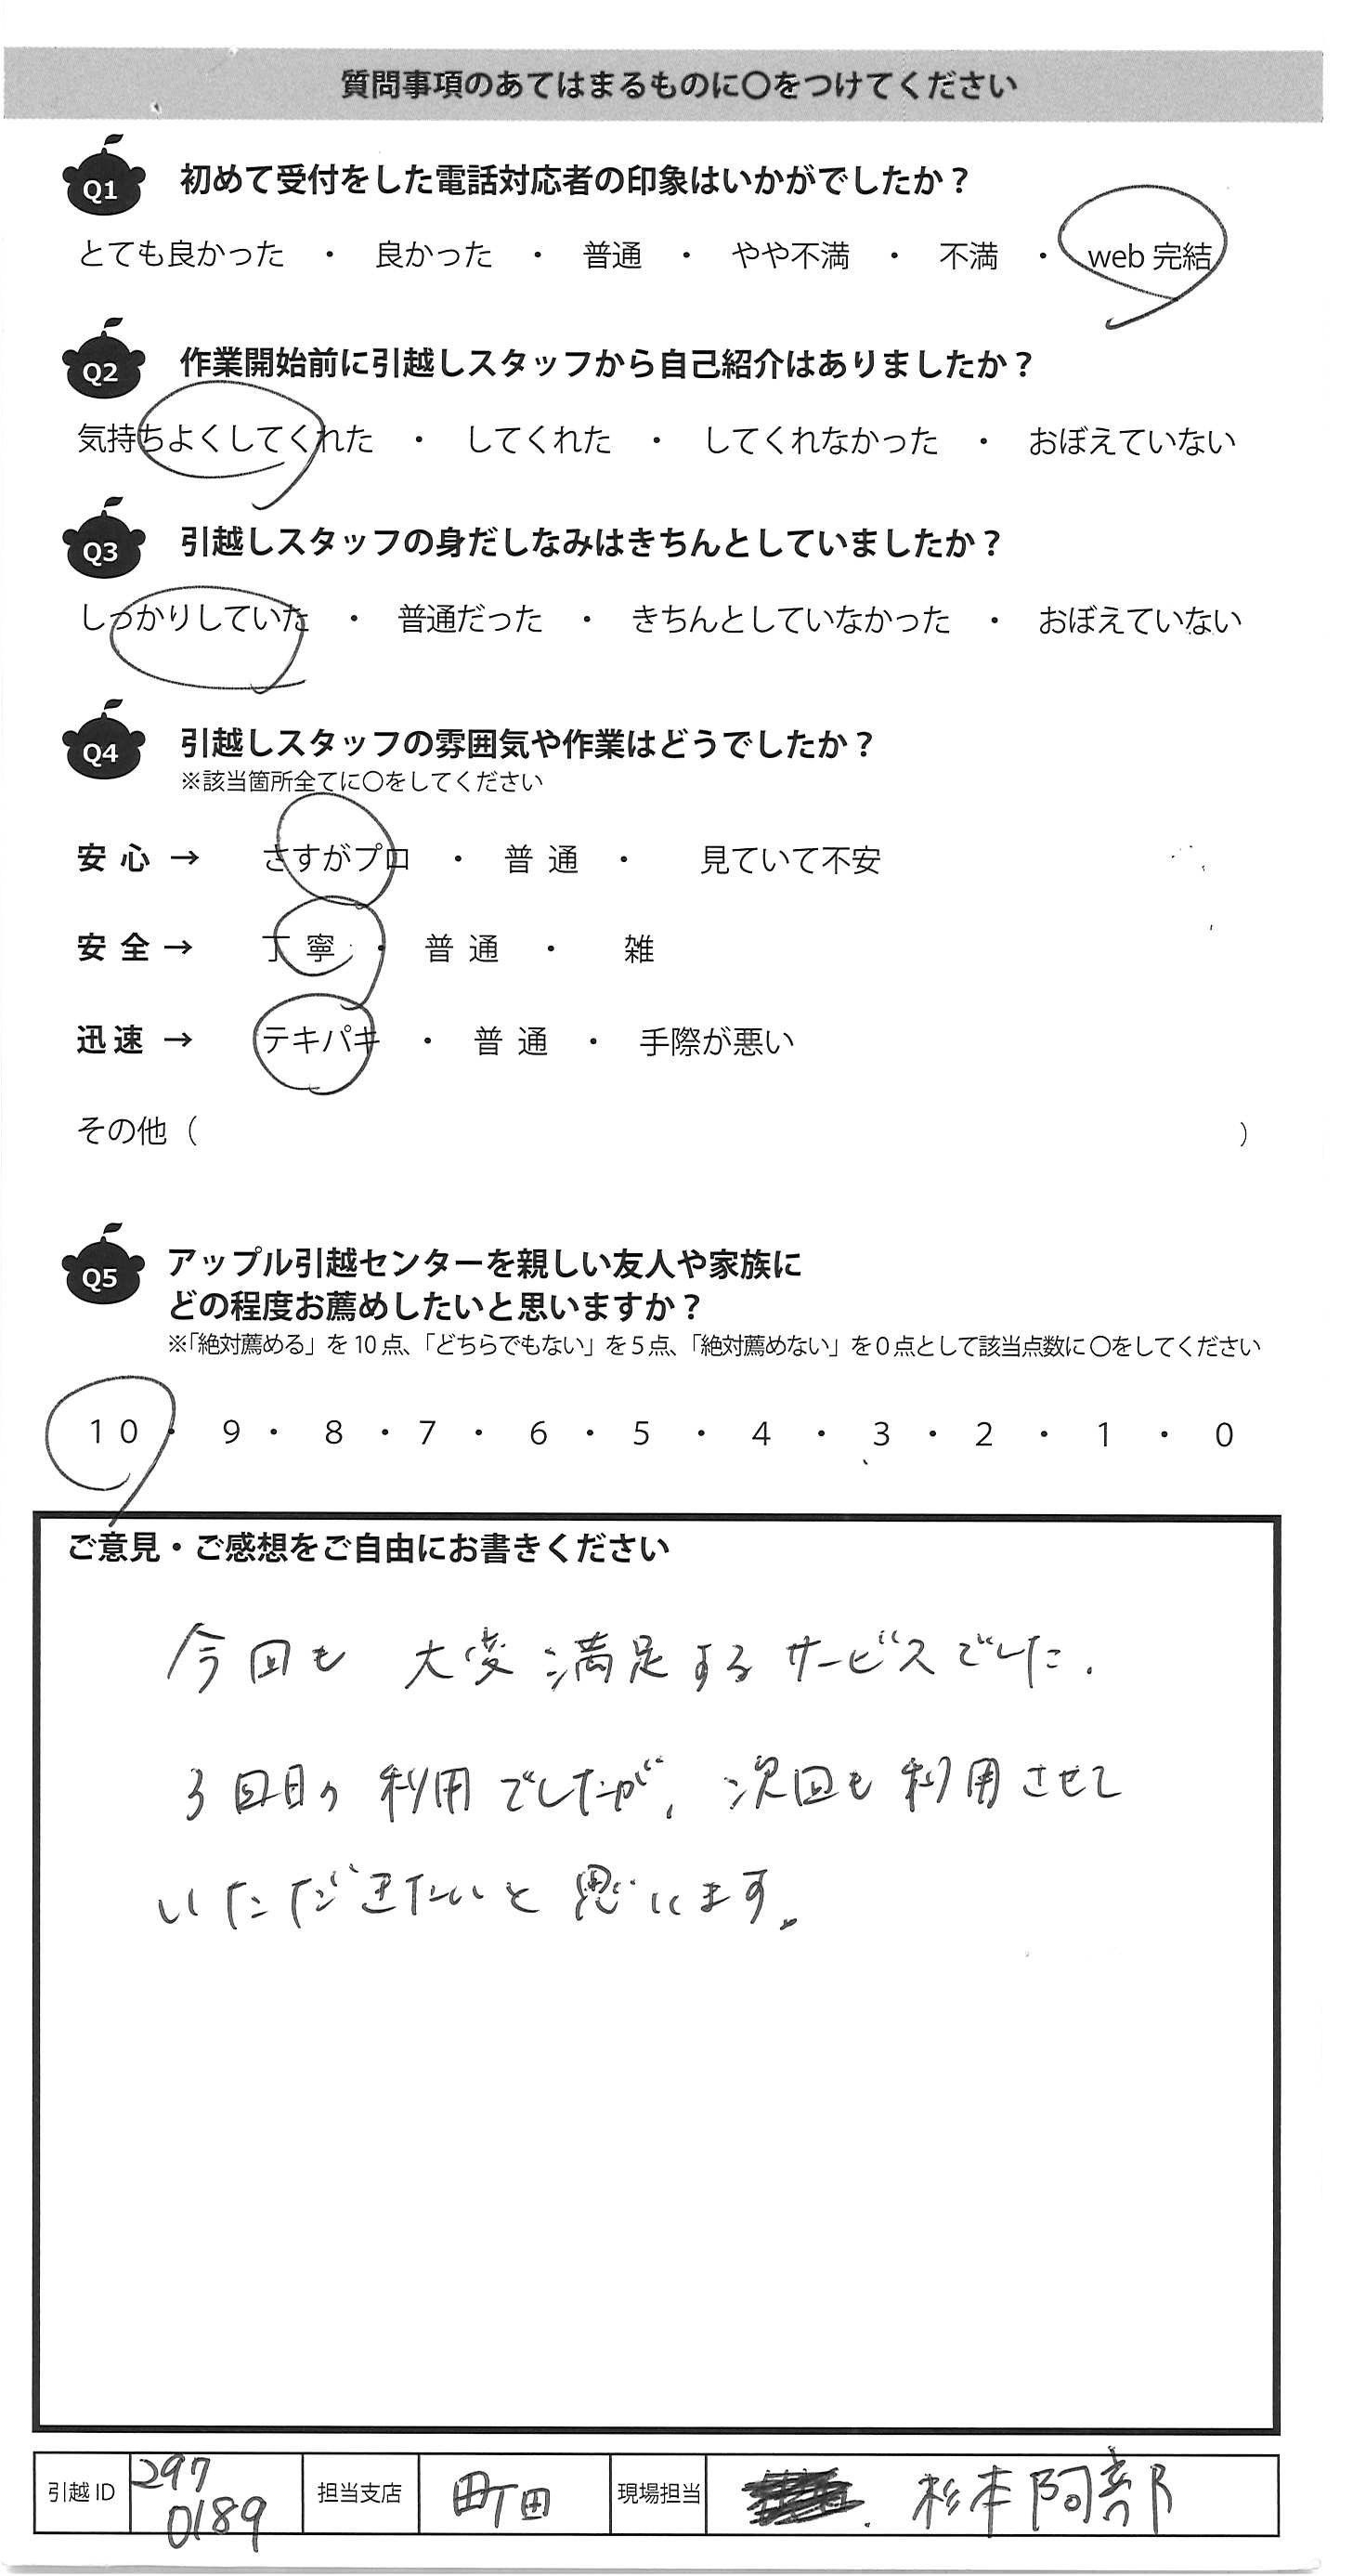 質問事項のあてはまるものに〇をつけてください
Q1 初めて受付をした電話対応者の印象はいかがでしたか？
とても良かった ・ 良かった ・ 普通 ・ やや不満 ・ 不満 ・ web 完結
Q2 作業開始前に引越しスタッフから自己紹介はありましたか？
気持ちよくしてくれた ・ してくれた ・ してくれなかった ・ おぼえていない
Q3 引越しスタッフの身だしなみはきちんとしていましたか？
しっかりしていた ・ 普通だった ・ きちんとしていなかった ・ おぼえていない
Q4 引越しスタッフの雰囲気や作業はどうでしたか？
※該当箇所全てに〇をしてください
安 心 → さすがプロ ・ 普 通 ・ 見ていて不安
安 全 → 丁 寧 ・ 普 通 ・ 雑
迅 速 → テキパキ ・ 普 通 ・ 手際が悪い
その他（ ）
Q5 アップル引越センターを親しい友人や家族に
どの程度お薦めしたいと思いますか？
※「絶対薦める」を 10 点、「どちらでもない」を 5 点、「絶対薦めない」を 0 点として該当点数に〇をしてください
10 ・ 9 ・ 8 ・ 7 ・ 6 ・ 5 ・ 4 ・ 3 ・ 2 ・ 1 ・ 0
ご意見・ご感想をご自由にお書きください
今回も 大変満足するサービスでした.
3回目の利用でしたが、次回も利用させて
いただきたいと思います。
引越 ID 297 0189 担当支店 町田 現場担当 杉本 阿部